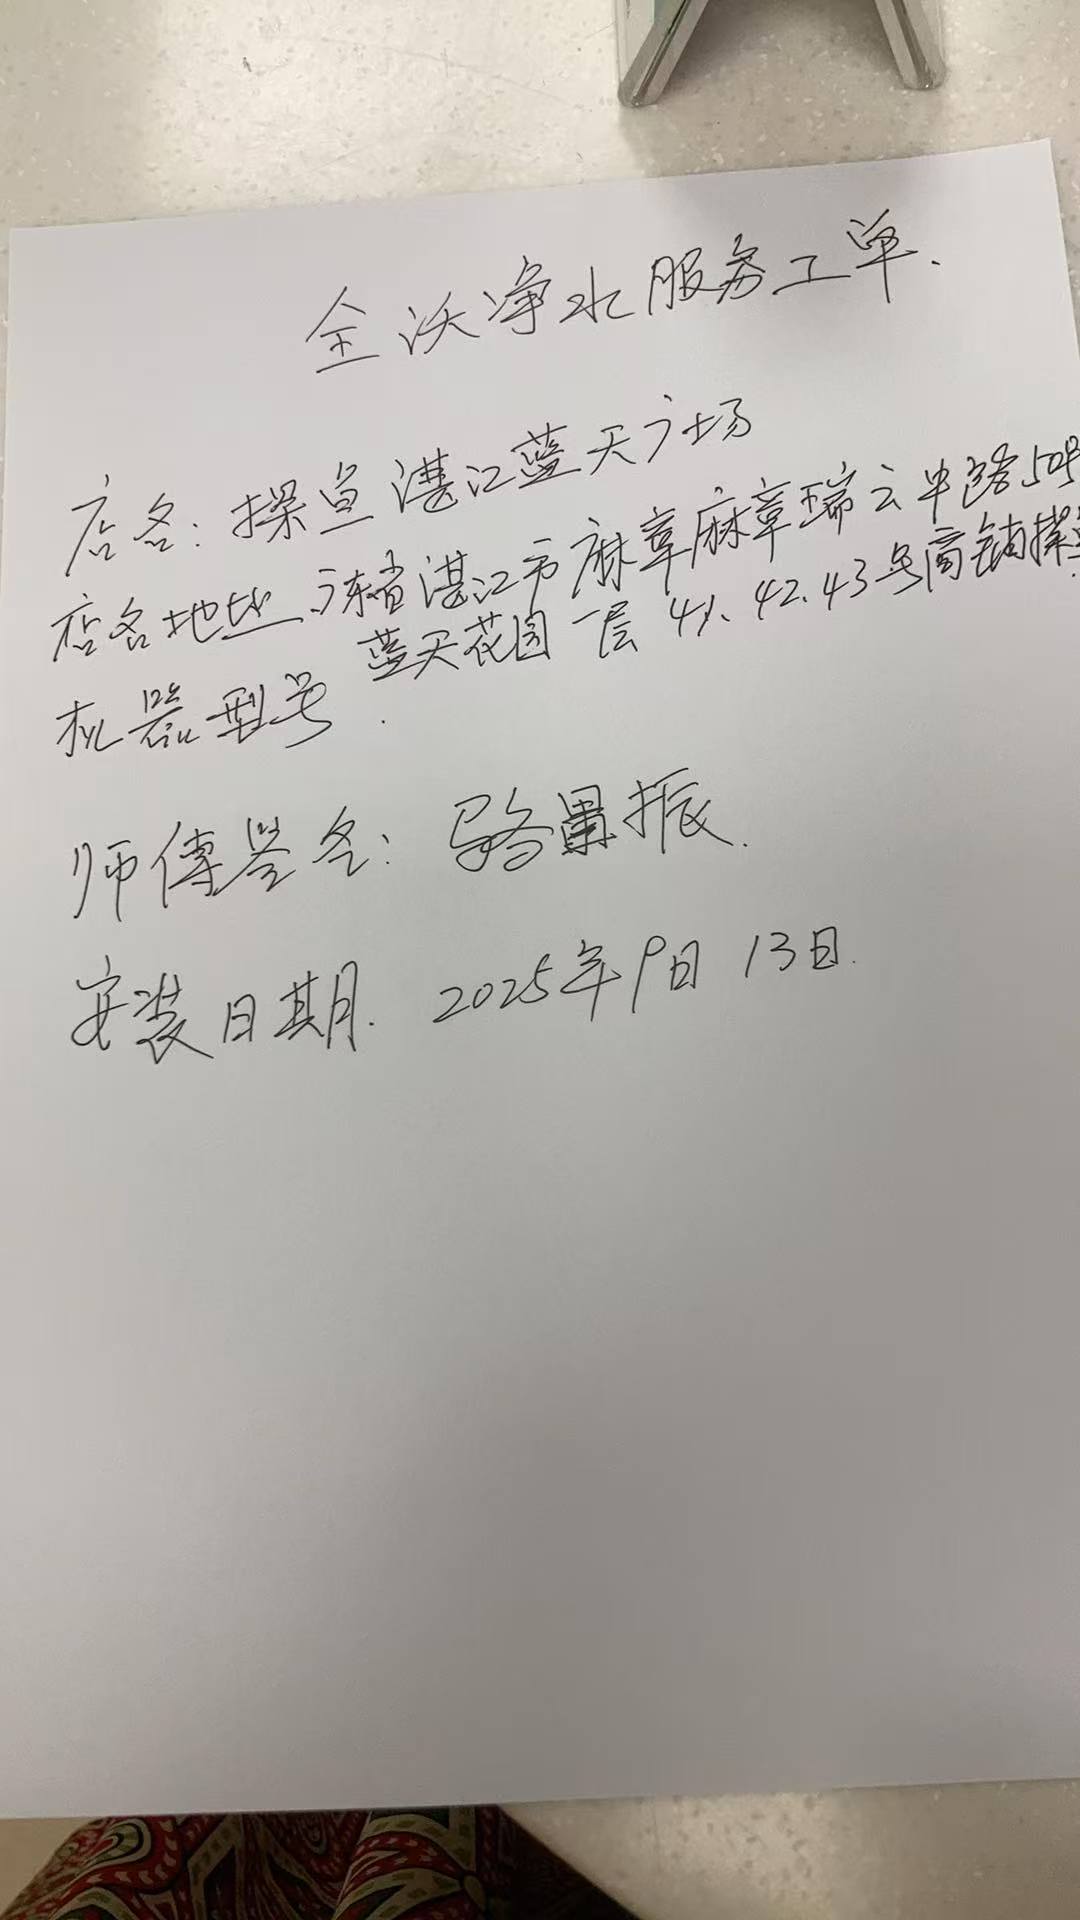 全沃净水服务工单.
店名: 探鱼湛江蓝天广场
店名地址.广东省湛江市麻章麻章瑞云中路50号
蓝天花园一层41、42、43号商铺探鱼
机器型号.
师傅签名: 振.
安装日期. 2025年9日13日.